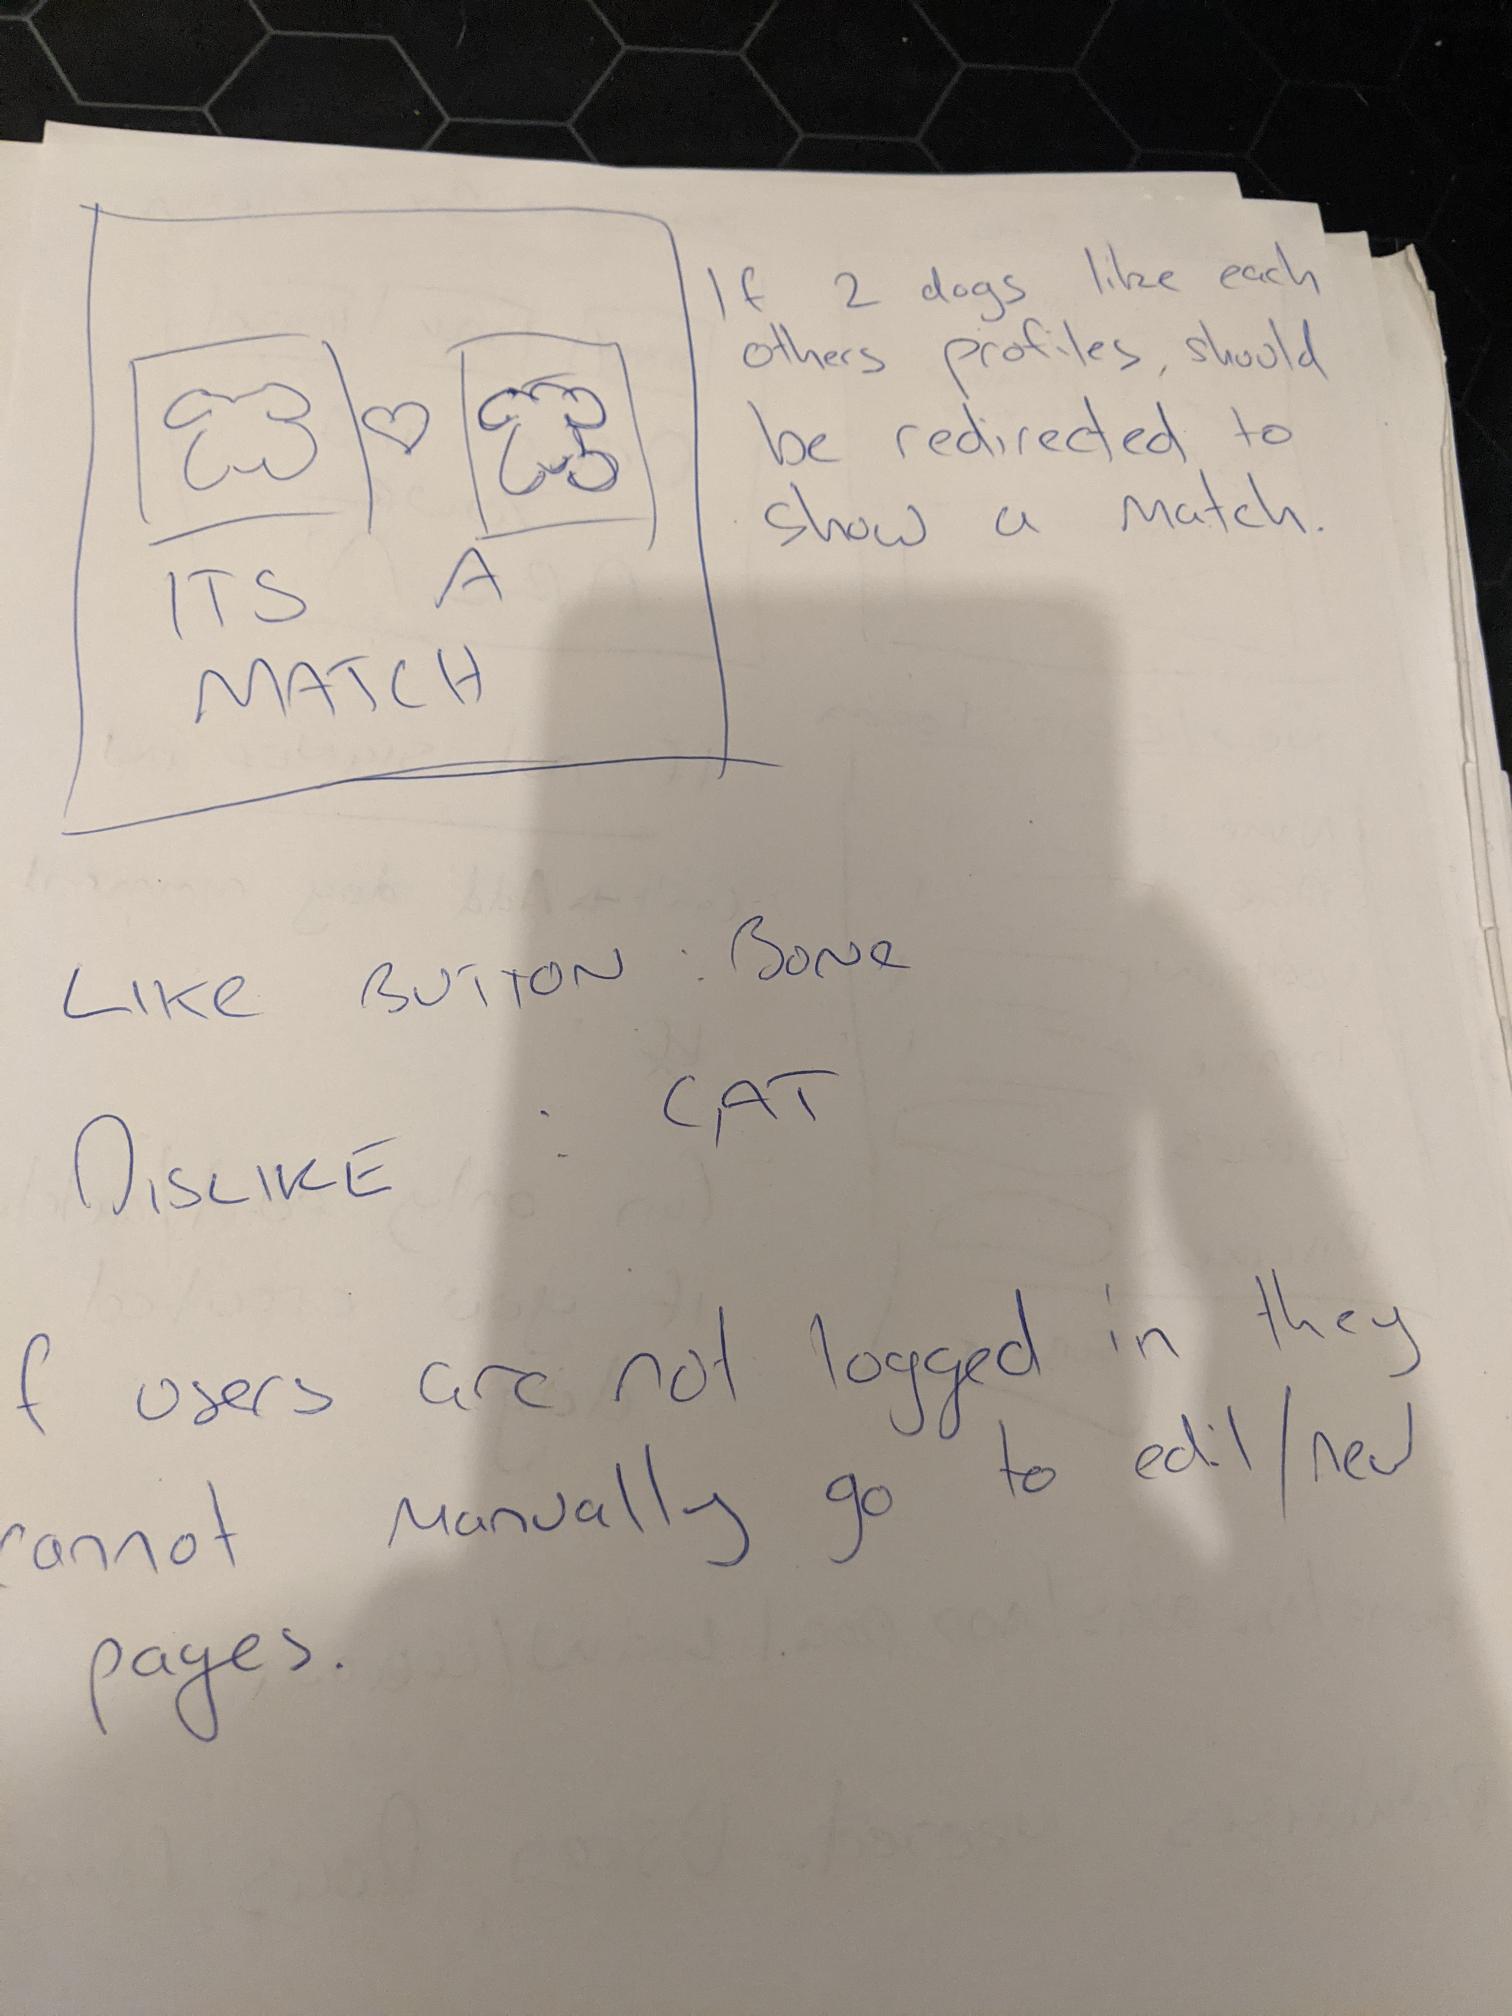 If 2 dogs like each
others profiles, should
be redirected to
show a match.
ITS A
MATCH
LIKE BUTTON : BONE
DISLIKE : CAT
f users are not logged in they
cannot manually go to edit/new
pages.